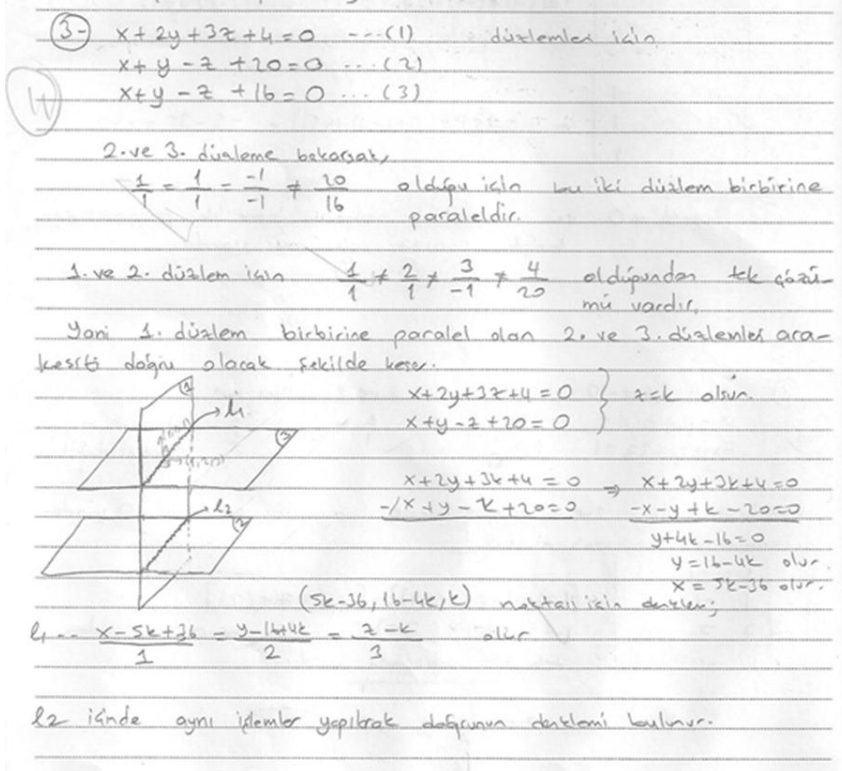 3- x + 2y + 3z + 4 = 0 ---(1) düzlemler için
x + y - z + 20 = 0 ...(2)
x + y - z + 16 = 0 ...(3)
2. ve 3. düzleme bakarsak,
1/1 = 1/1 = -1/-1 ≠ 20/16 olduğu için bu iki düzlem birbirine
paraleldir.
1. ve 2. düzlem için 1/1 ≠ 2/1 ≠ 3/-1 ≠ 4/20 olduğundan tek çözü-
mü vardır,
Yani 1. düzlem birbirine paralel olan 2. ve 3. düzlemleri ara-
kesiti doğru olacak şekilde keser.
x + 2y + 3z + 4 = 0 } z = k olsun.
x + y - z + 20 = 0
1
l1
3
l2
2
x + 2y + 3k + 4 = 0 ⇒ x + 2y + 3k + 4 = 0
-/ x + y - k + 20 = 0 -x - y + k - 20 = 0
y + 4k - 16 = 0
y = 16 - 4k olur.
x = 5k - 36 olur.
(5k-36, 16-4k, k) noktası için denklem;
l1 --- x-5k+36/1 = y-16+4k/2 = z-k/3 olur
l2 içinde aynı işlemler yapılarak doğrunun denklemi bulunur.